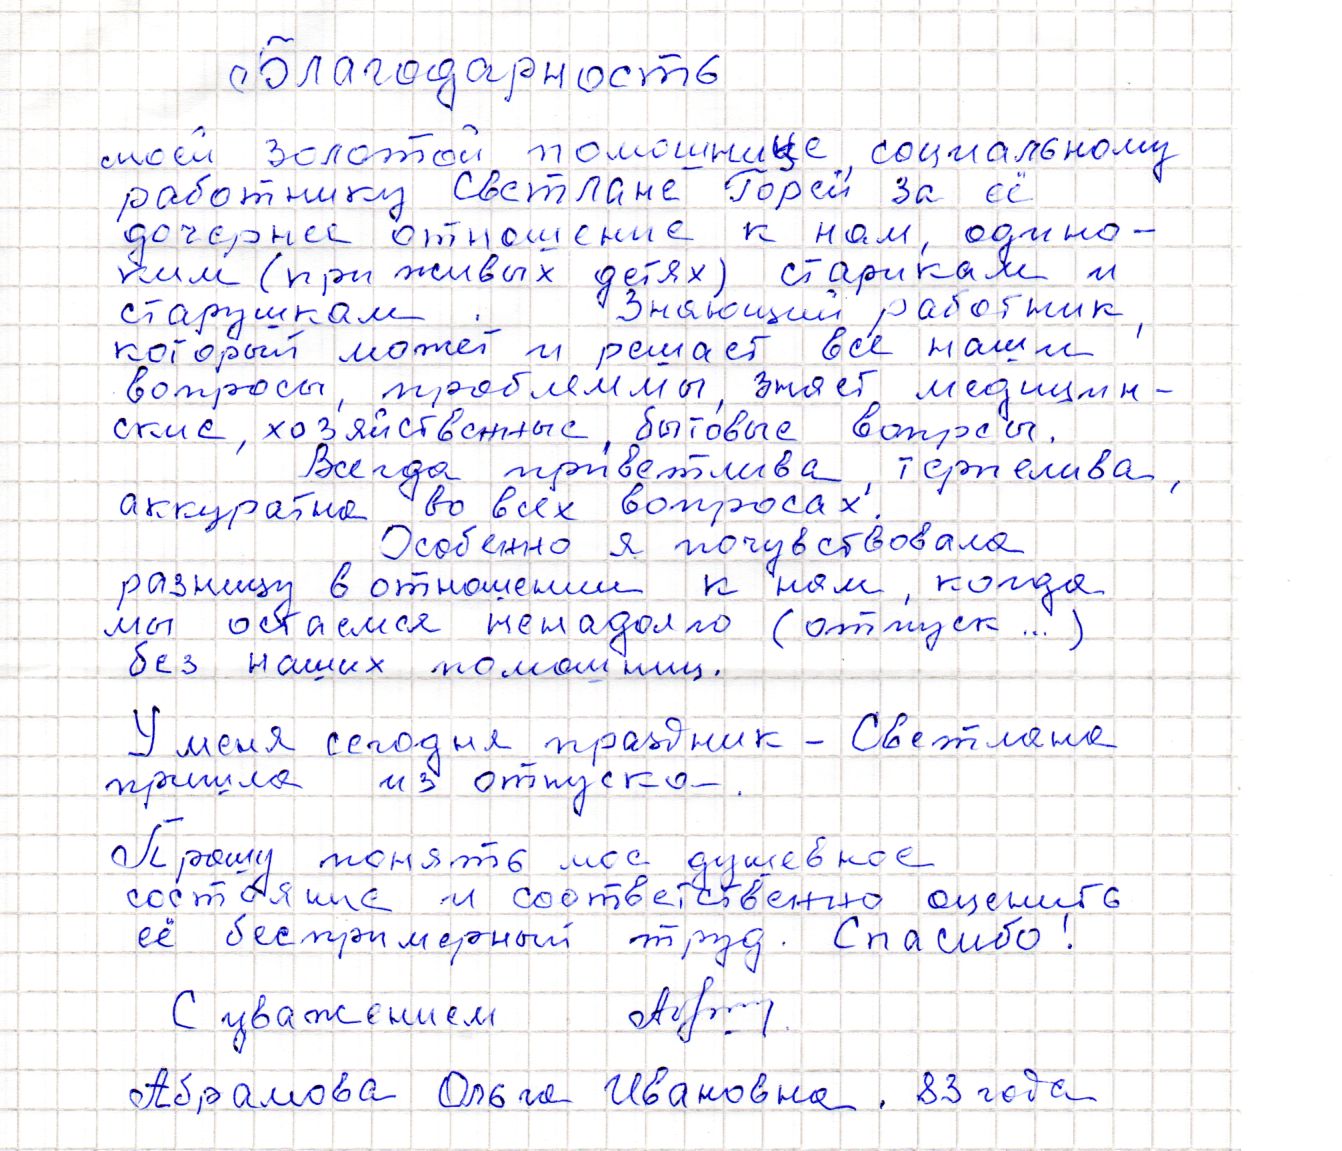 Благодарность
моей золотой помошнице, социальному
работнику Светлане Горей за её
дочернее отношение к нам, одино-
ким (при живых детях) старикам и
старушкам. Знающий работник,
который может и решает все наши
вопросы, проблеммы, знает медицин-
ские, хозяйственные, бытовые вопросы.
Всегда приветлива, терпелива,
аккуратна во всех вопросах.
Особенно я почувствовала
разницу в отношении к нам, когда
мы остаемся ненадолго (отпуск...)
без наших помошниц.
У меня сегодня праздник - Светлана
пришла из отпуска.
Прошу понять мое душевное
состояние и соответственно оценить
её беспримерный труд. Спасибо!
С уважением
Абрамова Ольга Ивановна. 83 года